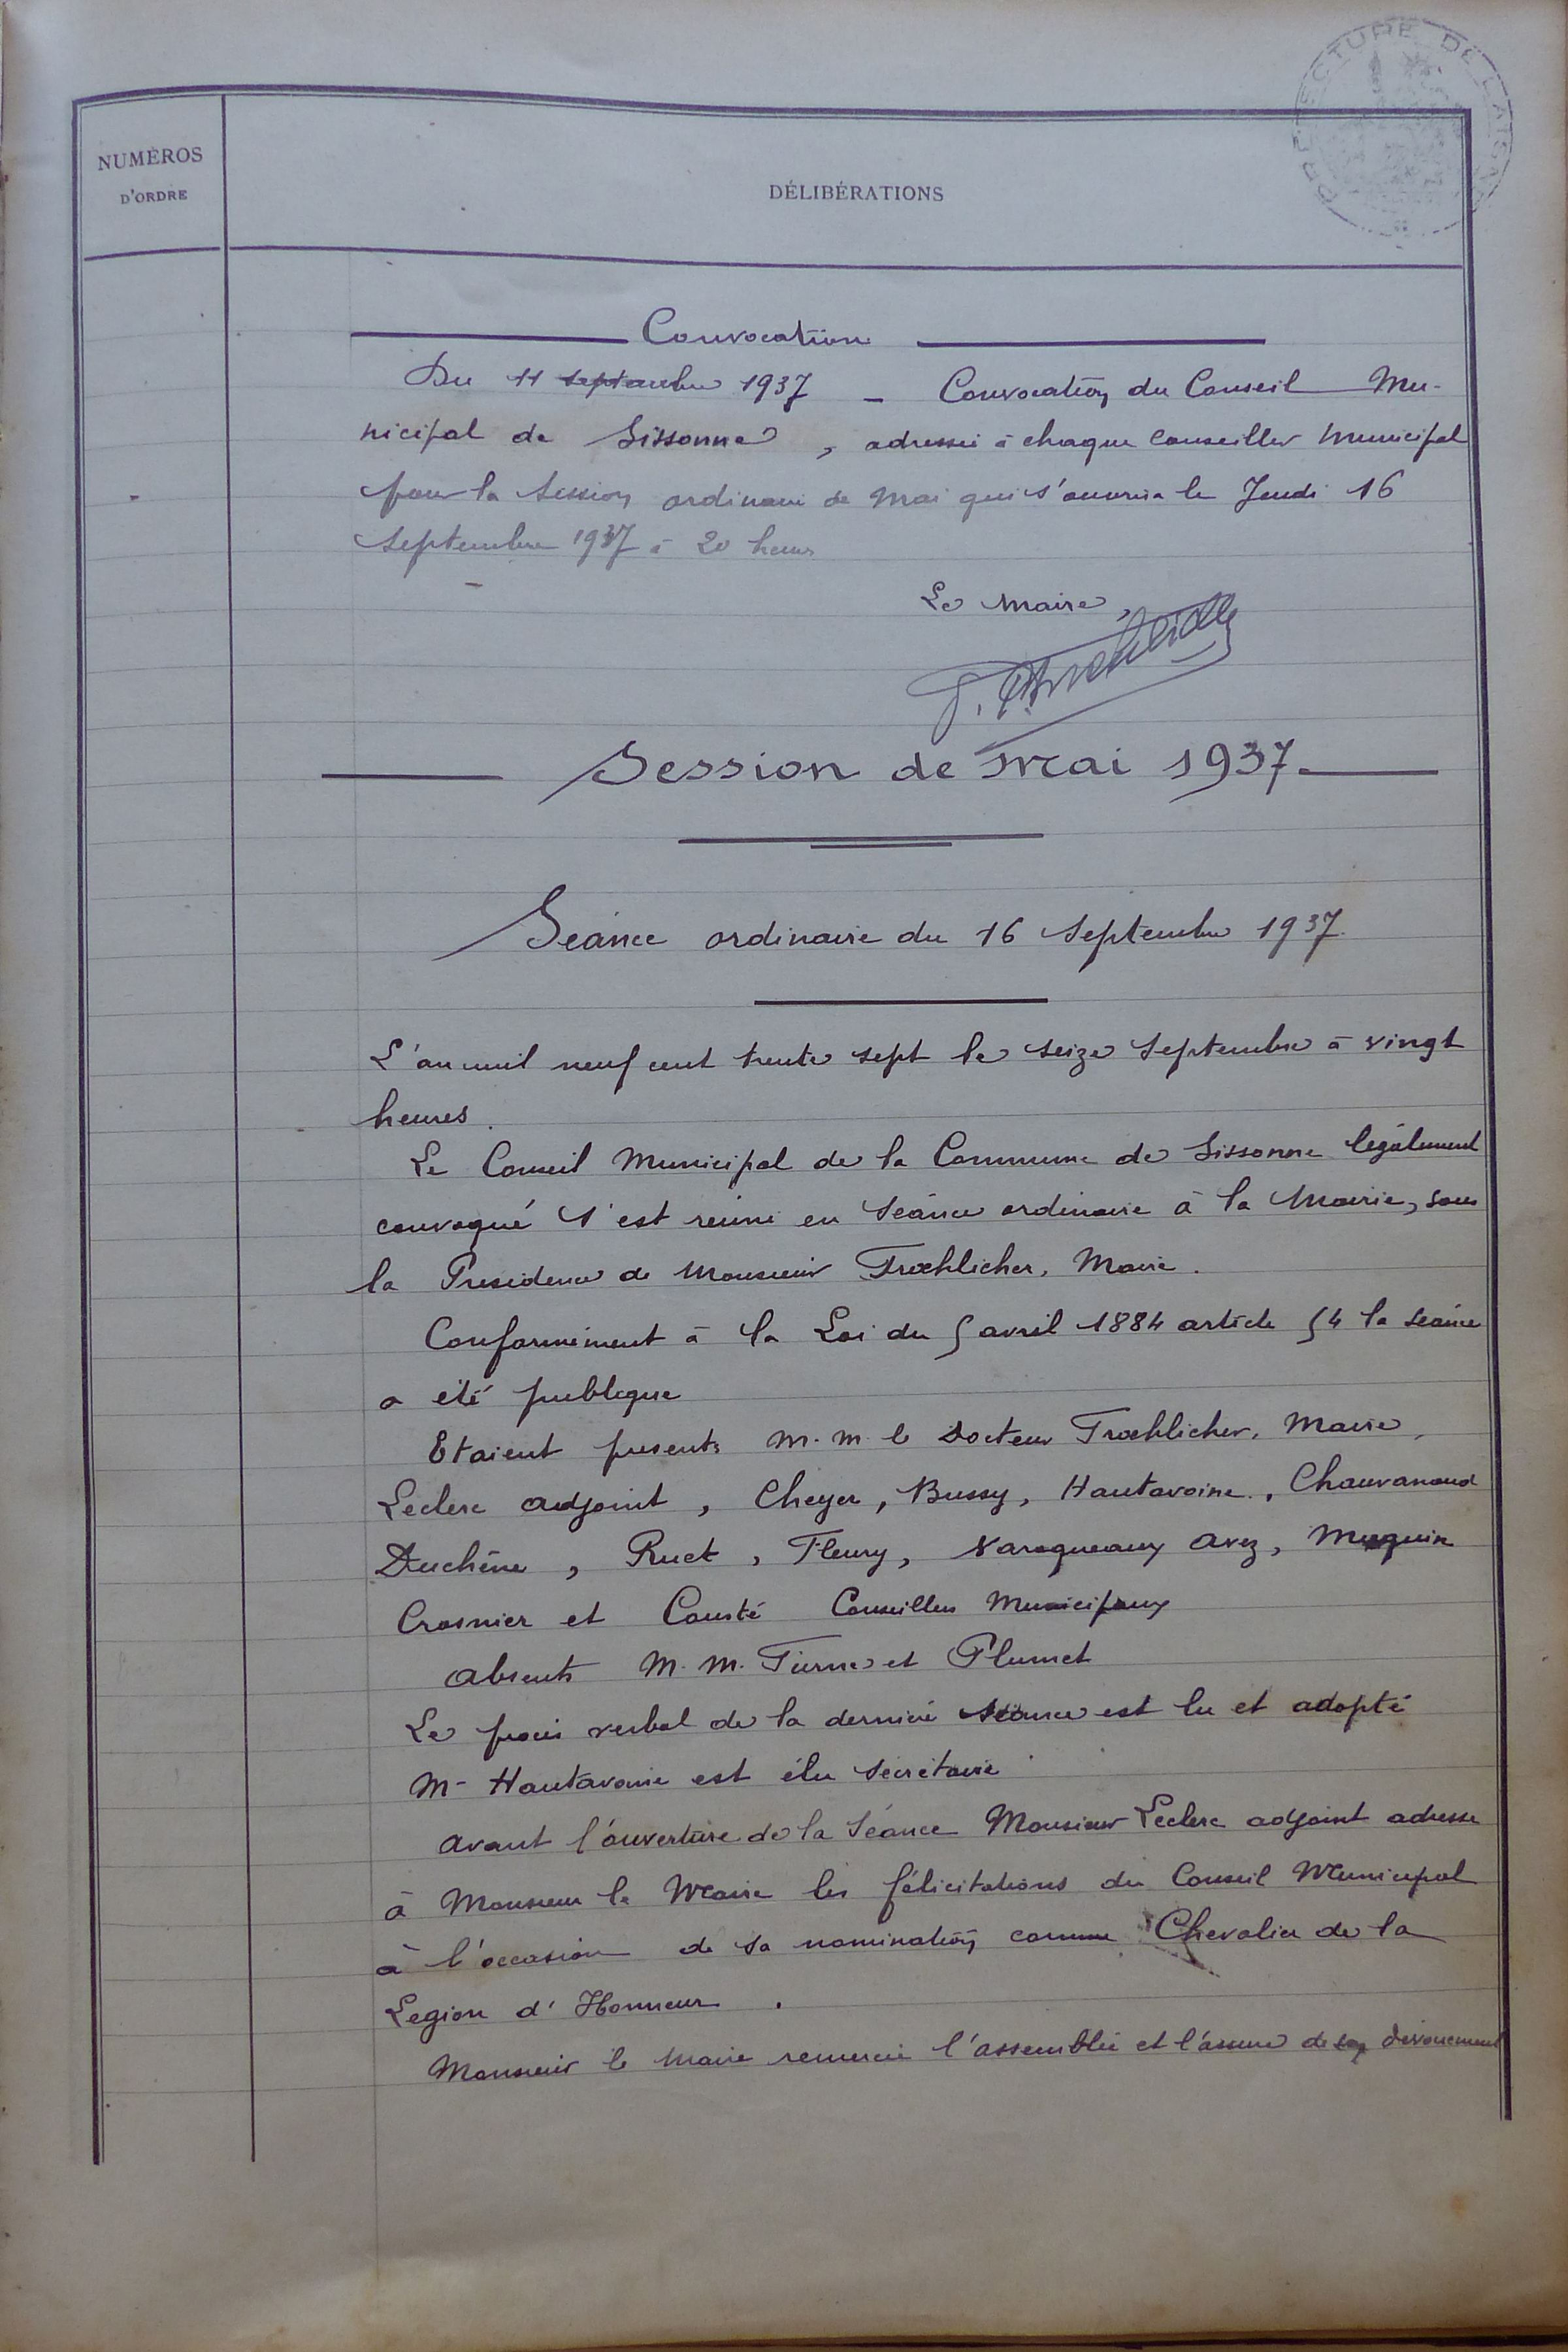 PRÉFECTURE DE L'AISNE
NUMÉROS
D'ORDRE
DÉLIBÉRATIONS
Convocation
Du 11 septembre 1937 – Convocation du Conseil Mu-
nicipal de Sissonne, adressée à chaque conseiller municipal
pour la session ordinaire de Mai qui s'ouvrira le Jeudi 16
septembre 1937 à 20 heures
Le Maire,
Session de Mai 1937.
Séance ordinaire du 16 Septembre 1937.
L'an mil neuf cent trente sept le seize Septembre à vingt
heures.
Le Conseil Municipal de la Commune de Sissonne légalement
convoqué s'est réuni en séance ordinaire à la Mairie, sous
la Présidence de Monsieur Froehlicher, Maire.
Conformément à la Loi du 5 avril 1884 article 54 la séance
a été publique
Etaient présents M.M. le Docteur Froehlicher, Maire,
Leclerc adjoint, Cheyer, Bussy, Hautavoine, Chauvanaud
Duchêne, Ruet, Fleury, Varoqueaux Avez, Muquin
Crosnier et Cousté Conseillers Municipaux
absents M.M. Turne et Plumet
Le procès verbal de la dernière séance est lu et adopté
M– Hautavoine est élu secrétaire
avant l'ouverture de la séance Monsieur Leclerc adjoint adresse
à Monsieur le Maire les félicitations du Conseil Municipal
à l'occasion de sa nomination comme Chevalier de la
Legion d'Honneur.
Monsieur le Maire remercie l'assemblée et l'assure de son dévouement